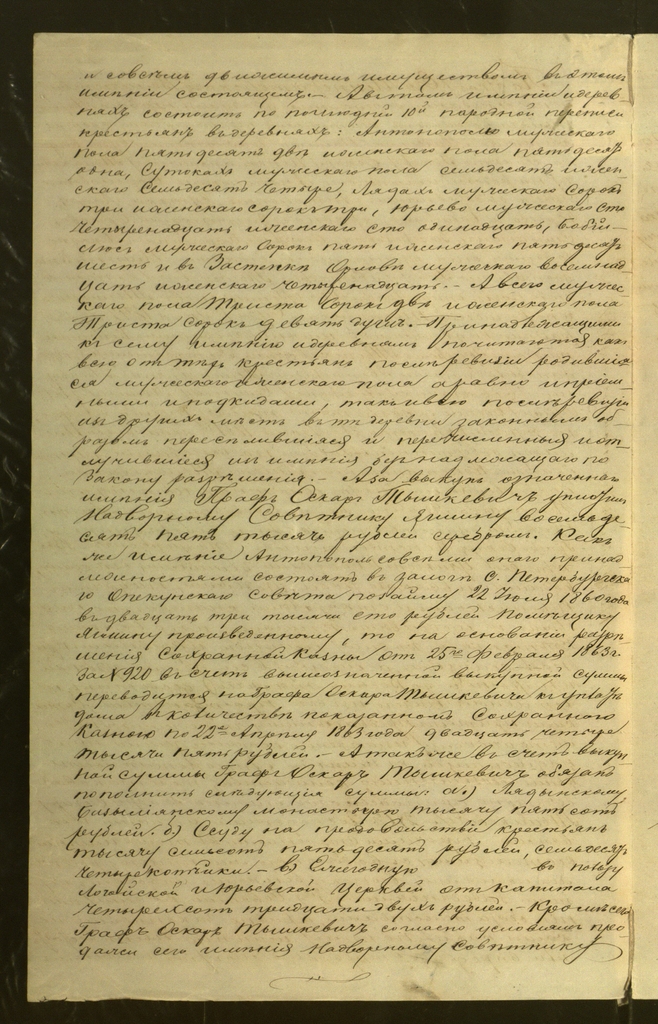 и совсѣмъ движимымъ имуществомъ въ этомъ
имѣніи состоящемъ. – А въ томъ имѣніи и дерев-
няхъ состоитъ по послѣдней 10й народной переписи
крестьянъ въ деревняхъ: Антонополю мужескаго
пола пятьдесятъ двѣ женскаго пола пятьдесятъ
одна, Сутокахъ мужескаго пола семьдесятъ жен-
скаго Семьдесятъ Четыре, Лядахъ мужескаго Сорокъ
три женскаго сорокъ три, Юрьево мужескаго Сто
Четырнадцать женскаго сто одинадцать,
мужескаго Сорокъ пять женскаго пятьдесятъ
шесть и въ Застѣнкѣ Орловѣ мужескаго восемнад-
цать женскаго Четырнадцать. – А всего мужес-
каго пола Триста Сорокъ двѣ женскаго пола
Триста сорокъ девять душъ. – Принадлежащими
къ сему имѣнію и деревнямъ почитаются какъ
всю отъ тѣхъ крестьянъ послѣ ревизіи родившіе-
ся мужескаго и женскаго пола а равно и пріем-
ными и подкидами, такъ и всю послѣ ревизіи
изъ другихъ мѣстъ въ тѣ деревни законнымъ об-
разомъ переселившіяся и перечисленныя и от-
лучившіеся изъ имѣнія безъ надлежащаго по
Закону разрѣшенія. – А за выкупъ означеннаго
имѣнія Графъ Оскаръ Тышкевичъ уплотилъ
Надворному Совѣтнику Яшину восемьде-
сятъ пять тысячъ рублей серебромъ. Какъ
же имѣніе Антонополь совсѣми онаго принад-
лежностями состоитъ въ залогѣ С. Петербургска-
го Опекунскаго Совѣта по займу 22 Іюля 1860 года
въ двадцать три тысячи сто рублей Помѣщику
Яшину произведенному, то на основаніи разрѣ-
шенія Сохранной Казны отъ 25го Февраля 1863 г.
за № 920 въ счетъ вышеозначенной выкупной суммы
переводится на Графа Оскара Тышкевича къ уплатѣ
дома въ количествѣ показанномъ Сохранною
Казною по 22е Апрѣля 1863 года двадцать четыре
тысячи пять рублей. – А также въ счетъ выкуп-
ной суммы Графъ Оскаръ Тышкевичъ обязанъ
пополнить слѣдующія суммы: а.) Лядынскому
Базыліянскому монастырю тысячу пять сотъ
рублей. б) Ссуду на продовольствіе крестьянъ
тысячу семьсотъ пятьдесятъ рублей, семьдесятъ
четыре копѣйки. – в) Ежегодную въ пользу
Логойской и Юрьевской Церквей отъ капитала
Четырехсотъ тридцати двухъ рублей. – Кромѣ сего
Графъ Оскаръ Тышкевичъ согласно условіямъ про-
дажи сего имѣнія Надворному Совѣтнику